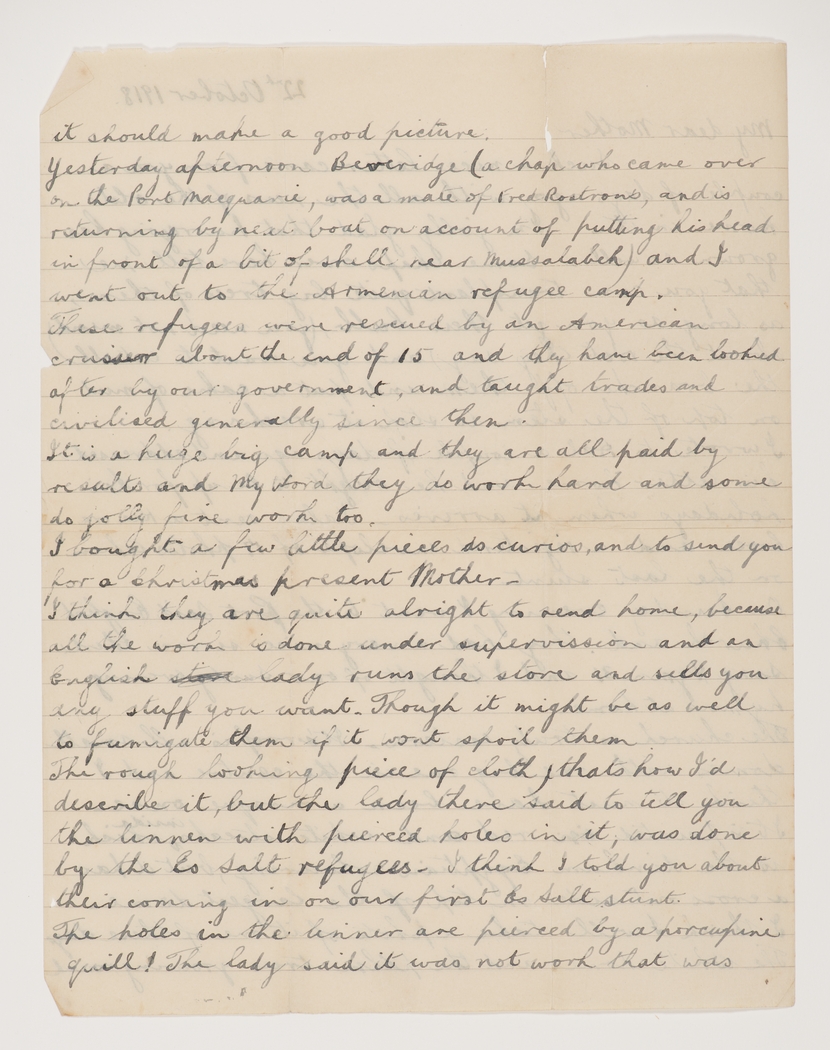 it should make a good picture.
Yesterday afternoon Beveridge (a chap who came over
on the Port Macquarie, was a mate of Fred Rostrons, and is
returning by next boat on account of putting his head
in front of a bit of shell near Mussalabeh) and I
went out to the Armenian refugee camp.
These refugees were rescued by an American
cruiser about the end of 15 and they have been looked
after by our government, and taught trades and
civilised generally since then.
It is a huge big camp and they are all paid by
results and My Word they do work hard and some
do jolly fine work too.
I bought a few little pieces as curios, and to send you
for a Christmas present Mother -
I think they are quite alright to send home, because
all the work is done under supervission and an
English store lady runs the store and sells you
any stuff you want - Though it might be as well
to fumigate them if it wont spoil them
The rough looking piece of cloth, thats how I'd
describe it, but the lady there said to tell you
the linnen with pierced holes in it, was done
by the Es Salt refugees - I think I told you about
their coming in on our first Es Salt stunt.
The holes in the linnen are pierced by a porcupine
quill! The lady said it was not work that was